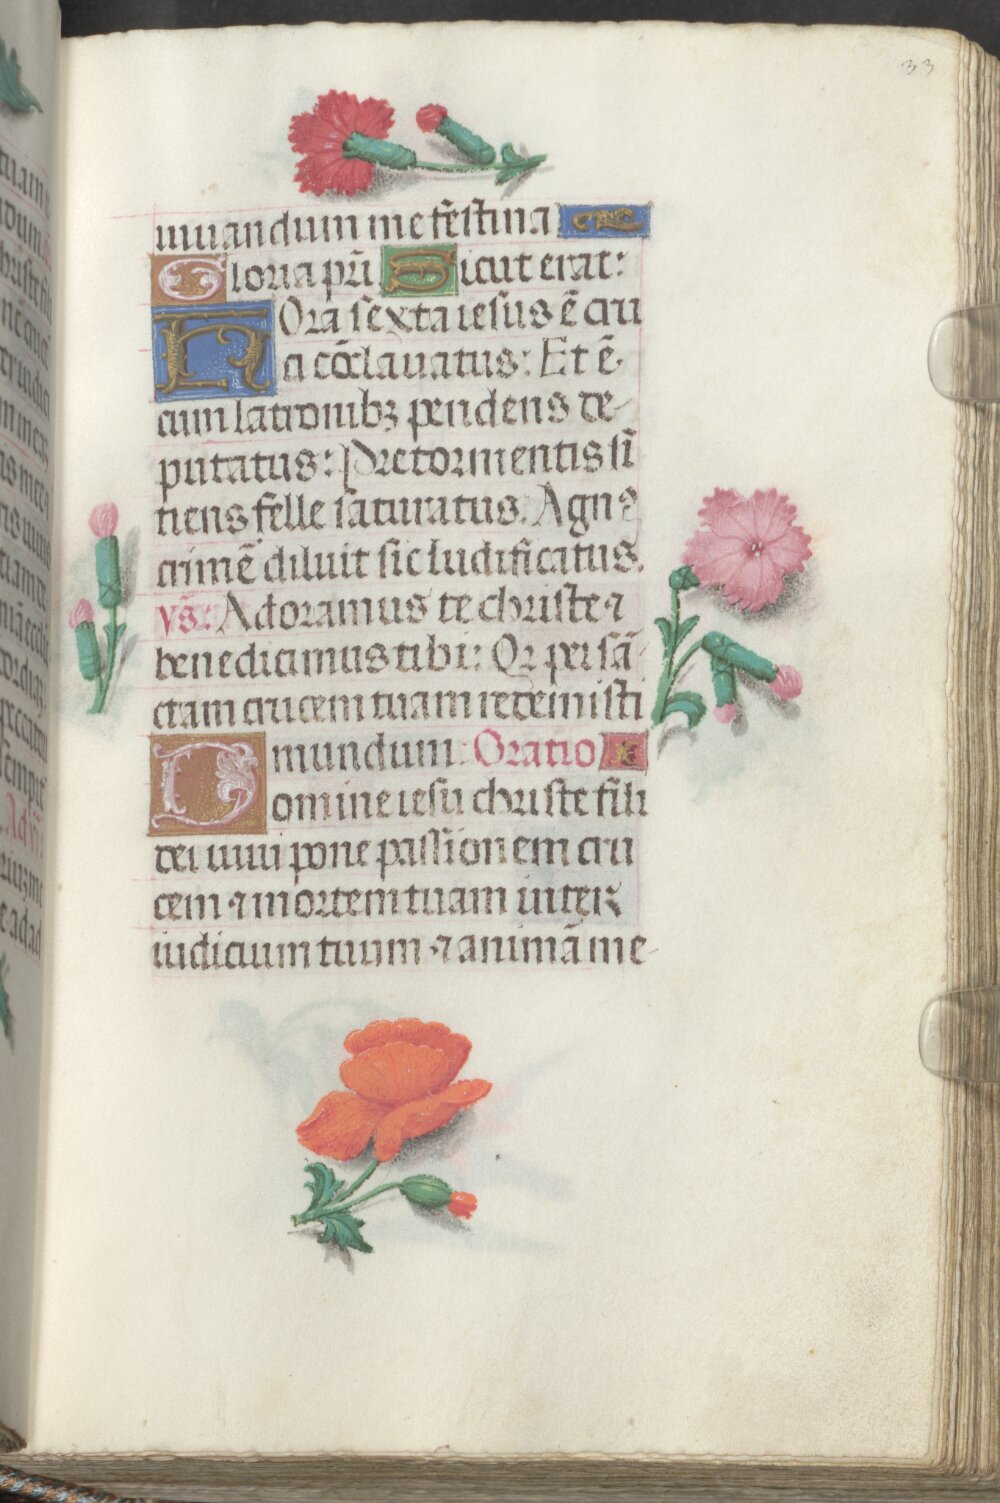 33
iuuandum me festina
Gloria pr̃i Sicut erat:
Hora sexta iesus ẽ cru
ci cõclauatus: Et ẽ
cum latronibꝫ pendens de-
putatus: Pre tormentis si
tiens felle saturatus. Agnꝰ
crimẽ diluit sic ludificatus.
v̄s. Adoramus te christe ⁊
benedicimus tibi: Qr per sã
ctam crucem tuam redemisti
mundum: Oratio
Domine iesu christe fili
dei uiui pone passionem cru
cem ⁊ mortem tuam inter
iudicium tuum ⁊ animã me-